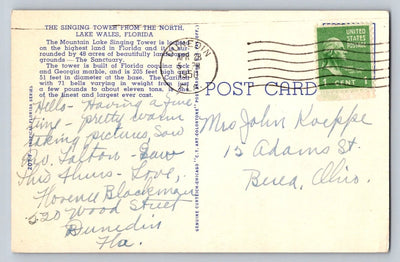 THE SINGING TOWER FROM THE NORTH,
LAKE WALES, FLORIDA
The Mountain Lake Singing Tower is located
on the highest land in Florida and is sur-
rounded by 48 acres of beautifully landscaped
grounds — The Sanctuary.
The tower is built of Florida coquina rock
and Georgia marble, and is 205 feet high and
51 feet in diameter at the base. The Carillon
with 71 bells varying in weight from
a few pounds to about eleven tons, is
of the finest and largest ever cast.
Hello - Having a fine
time - pretty warm
taking pictures, Saw
Gov. Talton - Saw
this Thurs - Love,
Florence Blackman
520 Wood Street
Dunedin
Fla.
DUNEDIN
APR
5 PM
FLA
UNITED
STATES
POSTAGE
1 CENT 1
POST CARD
Mrs John Koeppe
13 Adams St.
Berea, Ohio.